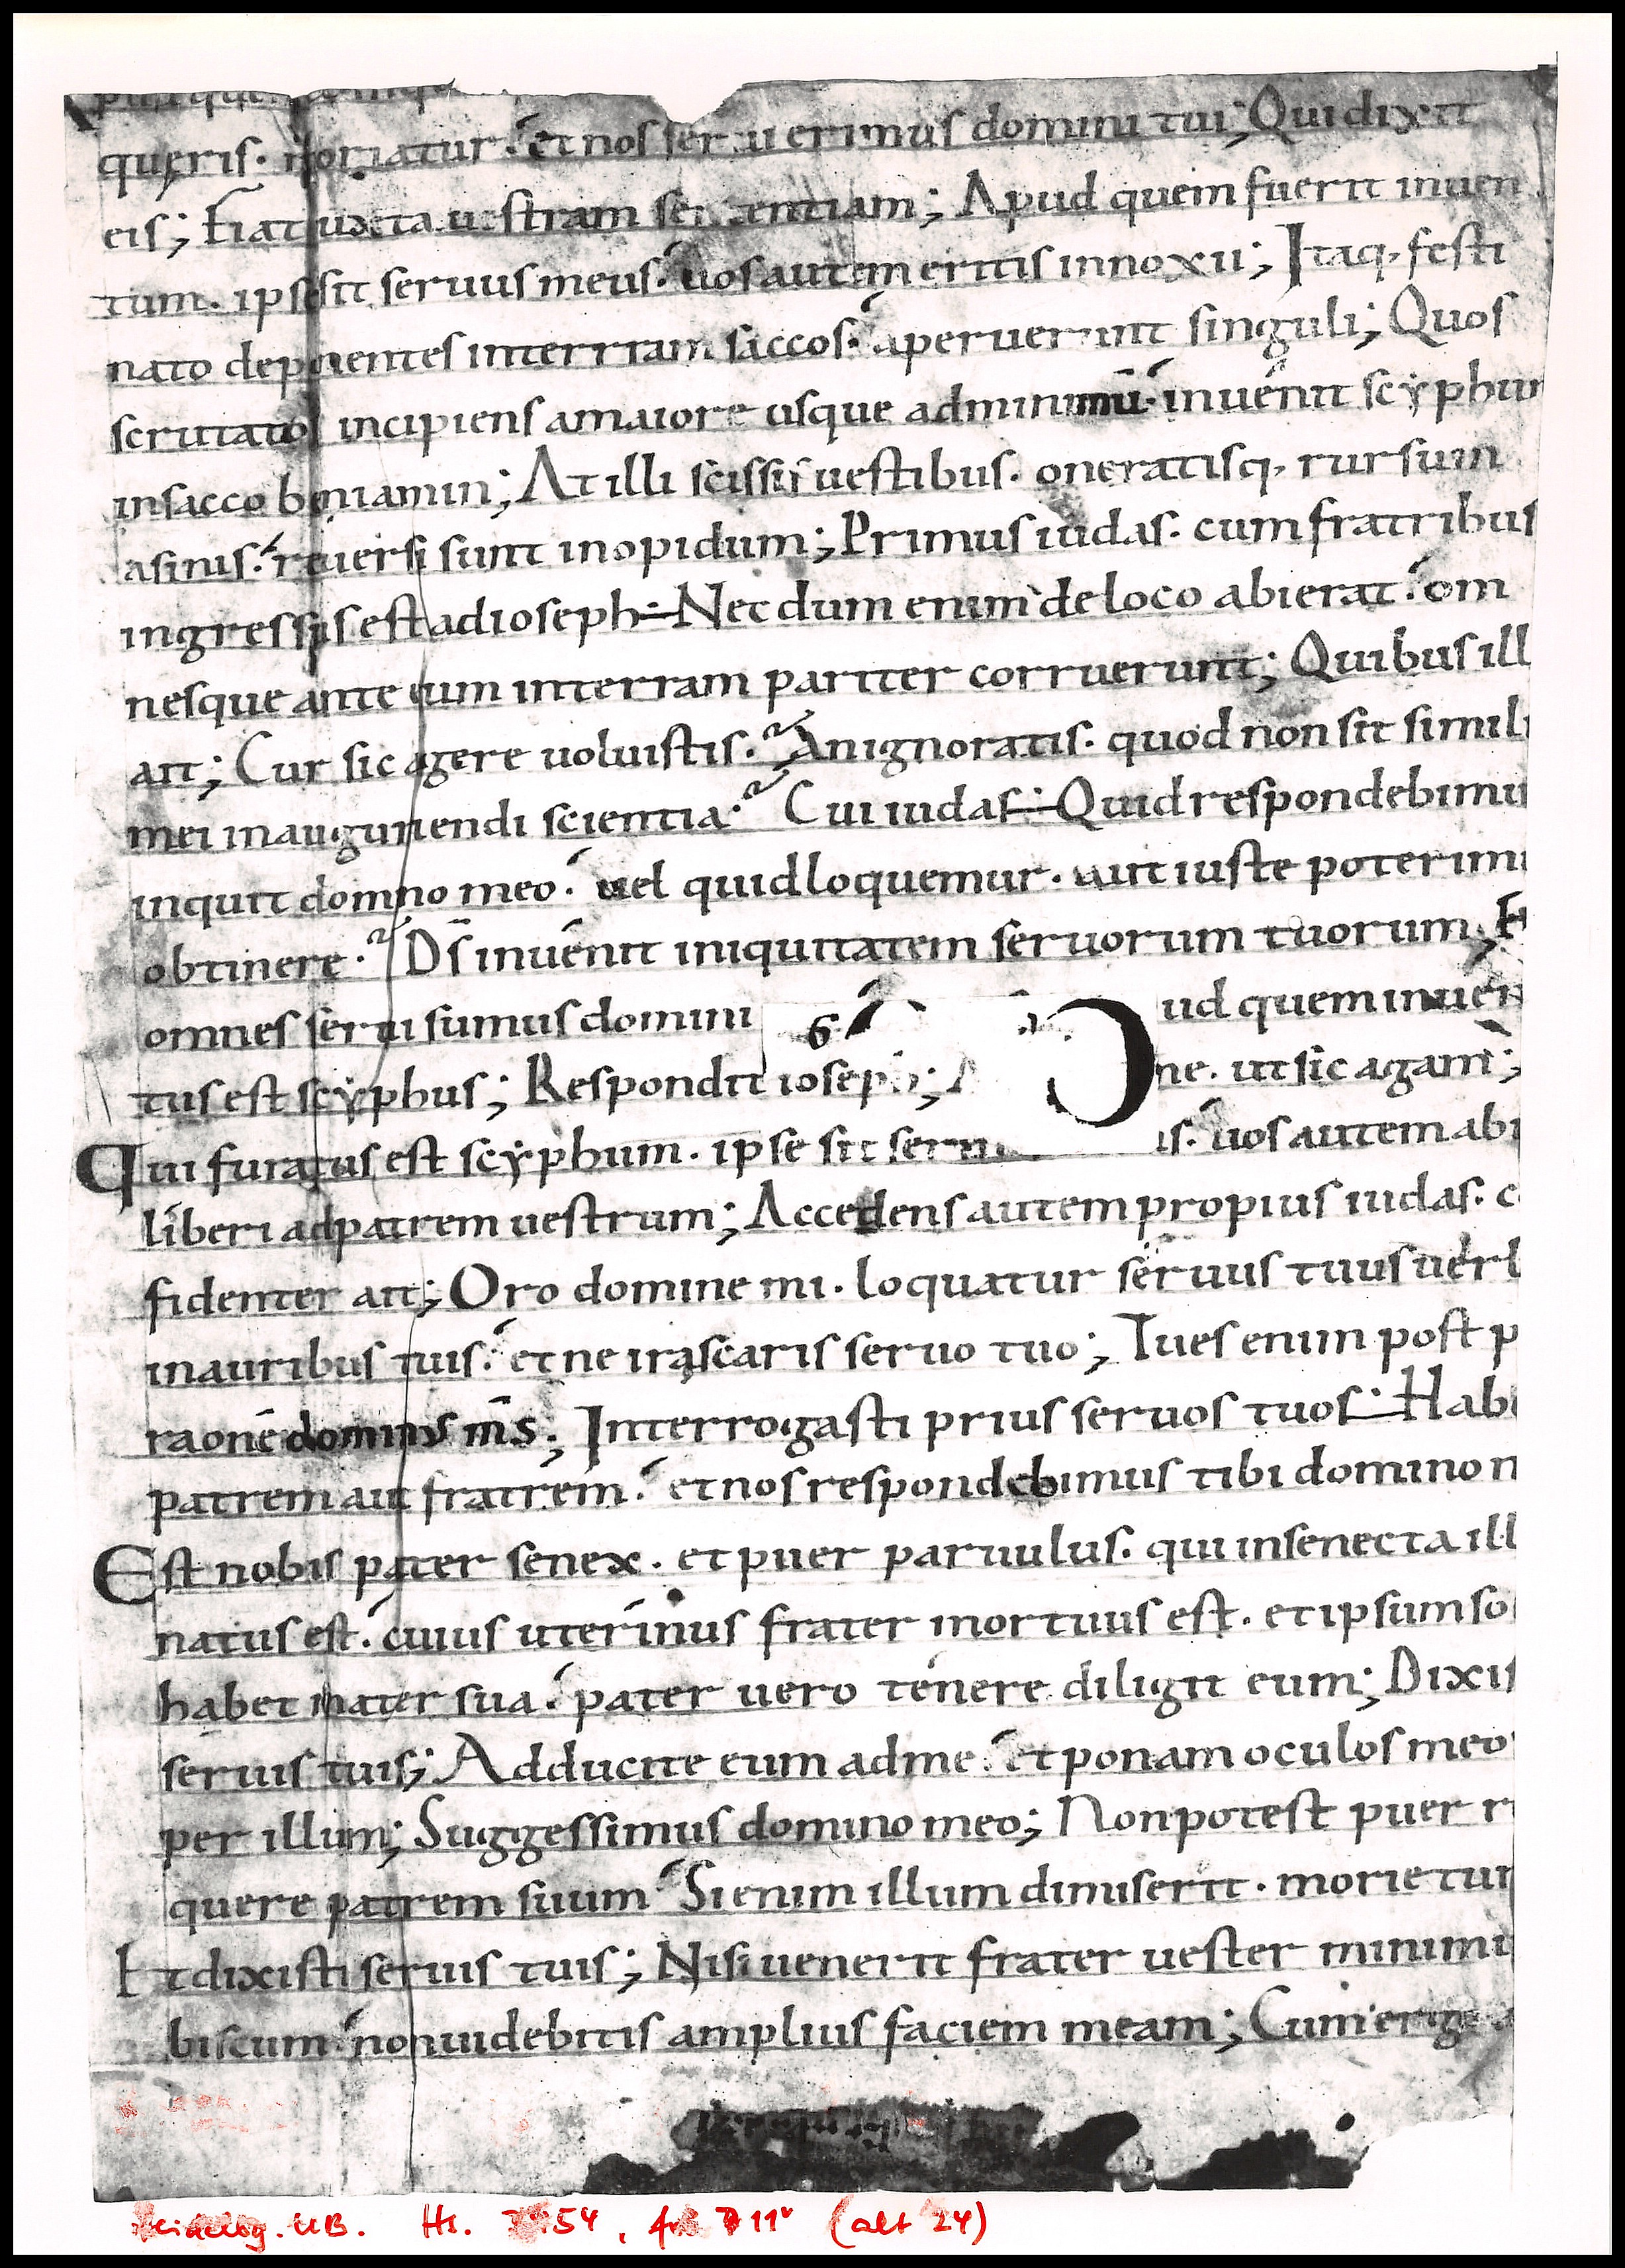 queris. moriatur. et nos seruierimus domini tui; Qui dixit
eis; Fiat iuxta uestram sententiam; Apud quem fuerit inuen
tum. ipse sit seruus meus. uos autem eritis innoxii; Itaq. festi
nato deponentes interram saccos. aperuerunt singuli; Quos
scrutatos incipiens amaiore usque adminimū. inuenit scyphum
insacco beniamin; At illi scissis uestibus. oneratisq. rursum
asinis. reuersi sunt inopidum; Primus iudas. cum fratribus
ingressus est adioseph. Nec dum enim de loco abierat. om
nesque ante eum interram pariter corruerunt; Quibus ill
ait; Cur sic agere uoluistis. An ignoratis. quod non sit simili
mei inauguriendi scientia. Cui iudas. Quid respondebimu
inquit domno meo. uel quid loquemur. aut iuste poterimu
obtinere. Ds̄ inuenit iniquitatem seruorum tuorum; E
omnes serui sumus domini 6 ud quem inuen
tus est scyphus; Respondit ioseph; ne. ut sic agam;
Qui furatus est scyphum. ipse sit seru is. uos autem abi
liberi adpatrem uestrum; Accedens autem propius iudas. c
fidenter ait; Oro domine mi. loquatur seruus tuus uerb
inauribus tuis. et ne irascaris seruo tuo; Tu es enim post p
raonē dominus m̄s; Interrogasti prius seruos tuos. Habe
patrem aut fratrem. et nos respondebimus tibi domino m
Est nobis pater senex. et puer paruulus. qui insenecta ill
natus est. cuius uterinus frater mortuus est. et ipsum so
habet mater sua. pater uero tenere diligit eum; Dixis
seruis tuis; Adducite eum adme. et ponam oculos meo
per illum; Suggessimus domino meo; Non potest puer r
quere patrem suum. Si enim illum dimiserit. morietur
Et dixisti seruis tuis; Nisi uenerit frater uester minimu
biscum. non uidebitis amplius faciem meam; Cum erg
UB. Hs. 54, 11v (alt 24)